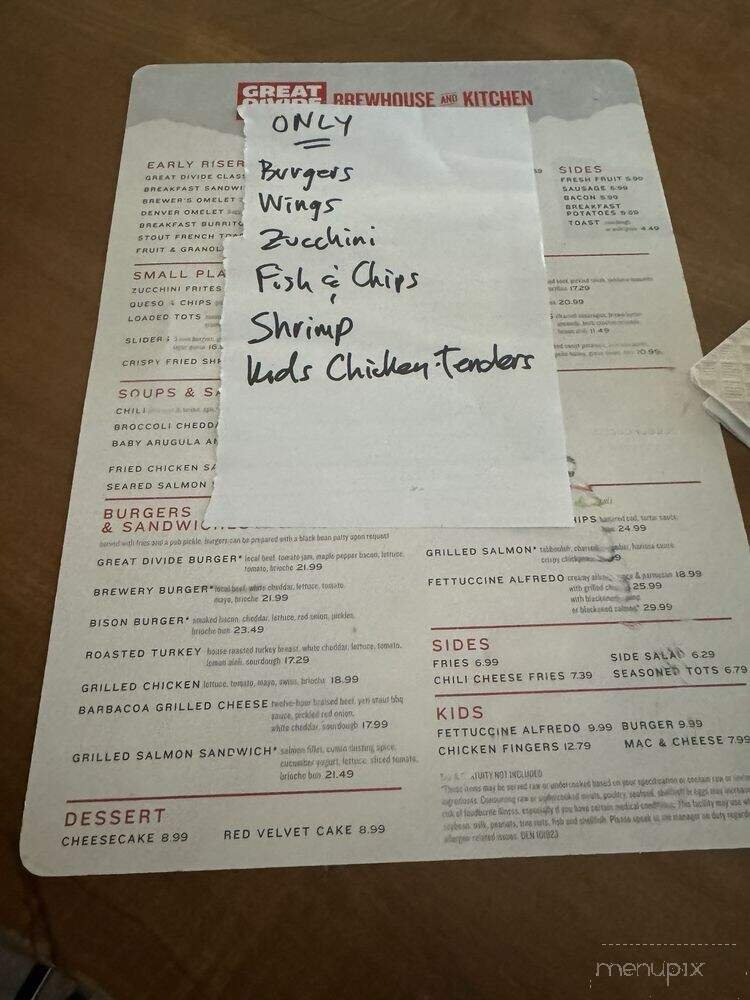 GREAT DIVIDE BREWHOUSE AND KITCHEN
ONLY
Burgers
Wings
Zucchini
Fish & Chips
Shrimp
Kids Chicken Tenders
EARLY RISER
GREAT DIVIDE CLAS
BREAKFAST SANDWI
BREWER'S OMELET
DENVER OMELET
BREAKFAST BURRITO
STOUT FRENCH TOA
FRUIT & GRANOL
SIDES
FRESH FRUIT 5.99
SAUSAGE 6.99
BACON 6.99
BREAKFAST
POTATOES
TOAST
4.49
SMALL PLA
ZUCCHINI FRITES
QUESO & CHIPS
LOADED TOTS
SLIDER
CRISPY FRIED SHR
17.29
20.99
11.49
10.99
SOUPS & SA
CHILI
BROCCOLI CHEDD
BABY ARUGULA AN
FRIED CHICKEN SA
SEARED SALMON
BURGERS
& SANDWICHES
served with fries and a pub pickle. burgers can be prepared with a black bean patty upon request
GREAT DIVIDE BURGER* local beef, tomato jam, maple pepper bacon, lettuce,
tomato, brioche 21.99
BREWERY BURGER* local beef, white cheddar, lettuce, tomato,
mayo, brioche 21.99
BISON BURGER* smoked bacon, cheddar, lettuce, red onion, pickles,
brioche bun 23.49
ROASTED TURKEY house roasted turkey breast, white cheddar, lettuce, tomato,
lemon aioli, sourdough 17.29
GRILLED CHICKEN lettuce, tomato, mayo, swiss, brioche 18.99
BARBACOA GRILLED CHEESE twelve-hour braised beef, yeti stout bbq
sauce, pickled red onion,
white cheddar, sourdough 17.99
GRILLED SALMON SANDWICH* salmon fillet, cumin dusting spice,
cucumber yogurt, lettuce, sliced tomato,
brioche bun 21.49
DESSERT
CHEESECAKE 8.99 RED VELVET CAKE 8.99
HIPS battered cod, tartar sauce,
24.99
GRILLED SALMON* tabbouleh, charred harissa sauce,
crispy chickpeas
FETTUCCINE ALFREDO creamy & parmesan 18.99
with grilled 25.99
with blackened
or blackened salmon* 29.99
SIDES
FRIES 6.99 SIDE SALAD 6.29
CHILI CHEESE FRIES 7.39 SEASONED TOTS 6.79
KIDS
FETTUCCINE ALFREDO 9.99 BURGER 9.99
CHICKEN FINGERS 12.79 MAC & CHEESE 7.99
GRATUITY NOT INCLUDED
*These items may be served raw or undercooked based on your specification or contain raw or
ingredients. Consuming raw or undercooked meats, poultry, seafood, shellfish or eggs may increase
risk of foodborne illness, especially if you have certain medical conditions. This facility may use
soybean, milk, peanuts, tree nuts, fish and shellfish. Please speak to the manager on duty regard
allergen related issues. DEN 101923
menupix